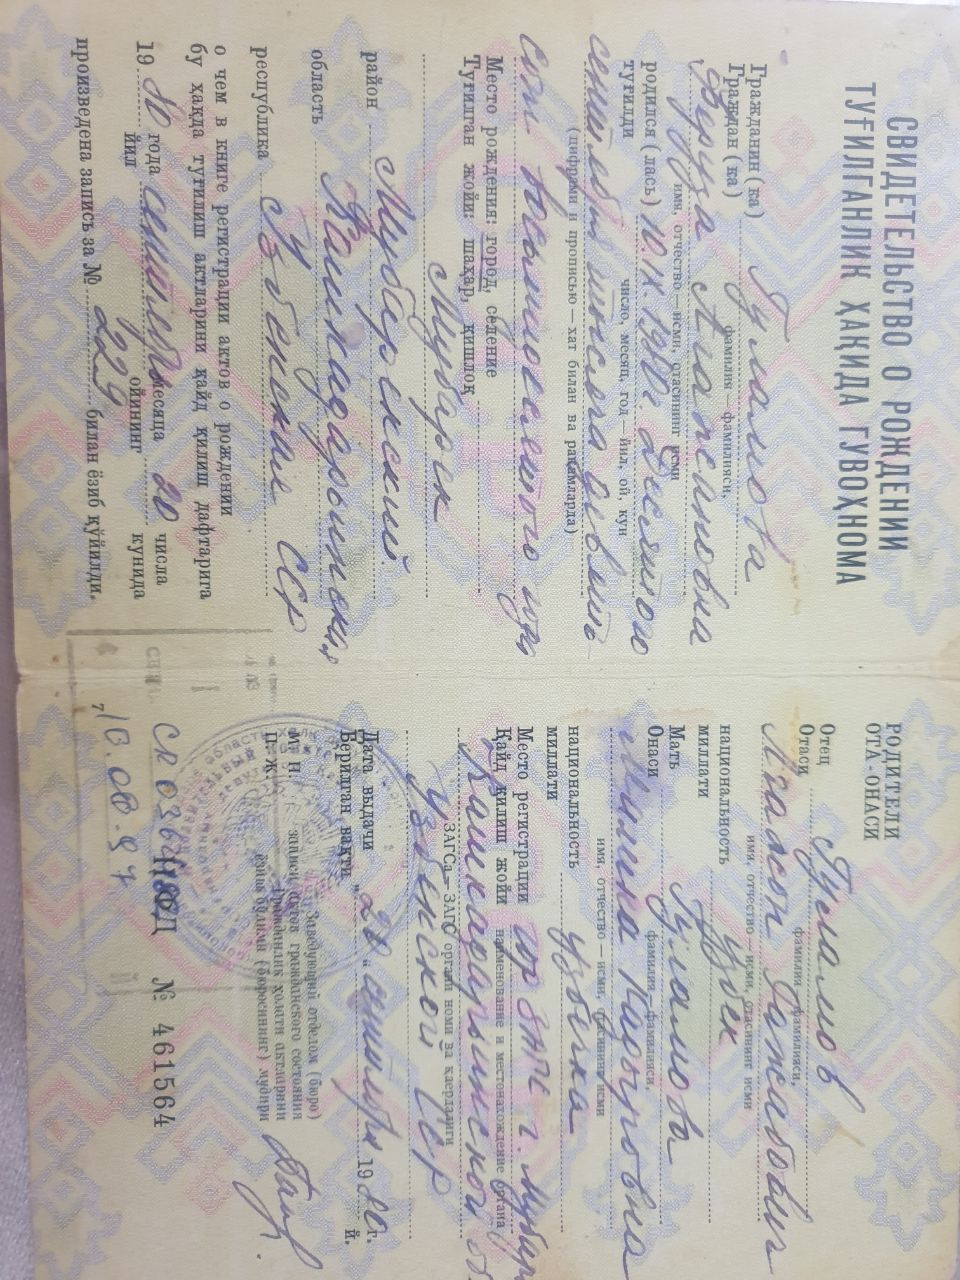 СВИДЕТЕЛЬСТВО О РОЖДЕНИИ
ТУҒИЛГАНЛИК ҲАҚИДА ГУВОҲНОМА
Гражданин (ка)
Граждан (ка) Гуламова
фамилия — фамилияси,
Феруза Агапсановна
имя, отчество — исми, отасининг исми
родился (лась) 10.IX.1980г. Десятого
туғилди
число, месяц, год — йил, ой, кун
сентября тысяча девять-
(цифрами и прописью — хат билан ва рақамларда)
сот восьмидесятого года
Место рождения: город, селение
Туғилган жойи: шаҳар, қишлоқ
г. Мубарек
район Мубарекский
область Кашкадарьинская
республика Узбекская ССР
о чем в книге регистрации актов о рождении
бу ҳақда туғилиш актларини қайд қилиш дафтарига
19 80 года сентября месяца 20 числа
йил ойининг кунида
произведена запись за № 229 билан ёзиб қўйилди.
РОДИТЕЛИ
ОТА-ОНАСИ
Отец
Отаси Гуламов
фамилия — фамилияси,
Агапсон Ражабович
имя, отчество — исми, отасининг исми
национальность узбек
миллати
Мать
Онаси Гуламова
фамилия — фамилияси,
Кадировна
имя, отчество — исми, отасининг исми
национальность узбечка
миллати
Место регистрации гор ЗАГС г. Мубарек
Қайд қилиш жойи наименование и местонахождение органа
Кашкадарьинской об.
ЗАГСа — ЗАГС органи номи ва қаерлалиги
Узбекской ССР
Дата выдачи
Берилган вақти „20“ сентября 19 80 г.
й.
М. П.
П. Ж.
Заведующий отделом (бюро)
записи актов гражданского состояния
Гражданлик холати актларини
ёзиш бўлими (бюросининг) мудири
№ 461564